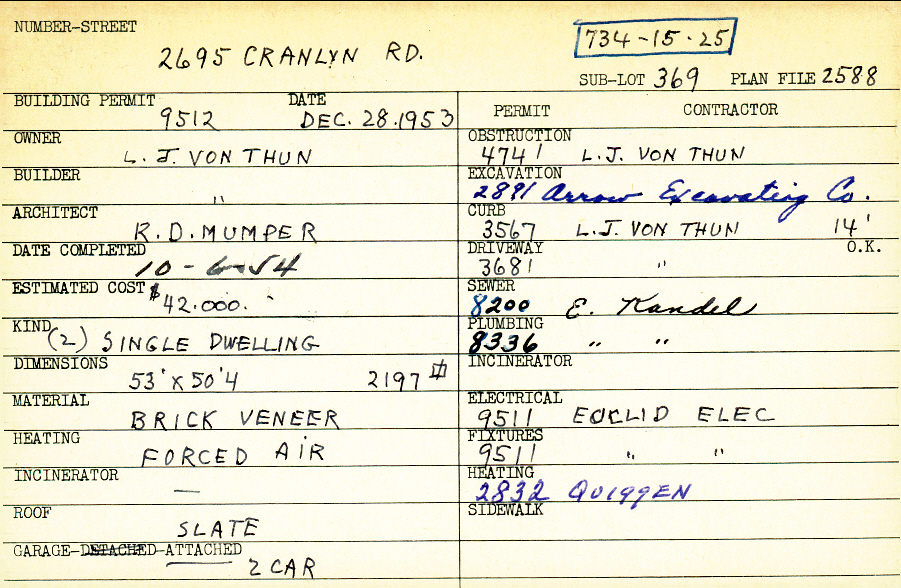 NUMBER-STREET
2695 CRANLYN RD.
734-15-25
SUB-LOT 369 PLAN FILE 2588
BUILDING PERMIT DATE
9512 DEC. 28.1953
OWNER
L. J. VON THUN
BUILDER
"
ARCHITECT
R.D. MUMPER
DATE COMPLETED
10-6-54
ESTIMATED COST $42.000.
KIND (2) SINGLE DWELLING
DIMENSIONS
53' x 50'4 2197 ▯
MATERIAL
BRICK VENEER
HEATING
FORCED AIR
INCINERATOR
—
ROOF
SLATE
GARAGE-DETACHED-ATTACHED
2 CAR
PERMIT CONTRACTOR
OBSTRUCTION
4741 L.J. VON THUN
EXCAVATION
2891 Arrow Excavating Co.
CURB
3567 L.J. VON THUN 14'
DRIVEWAY O.K.
3681 "
SEWER
8200 E. Kandel
PLUMBING
8336 " "
INCINERATOR
ELECTRICAL
9511 EUCLID ELEC
FIXTURES
9511 " "
HEATING
2832 QUIGGEN
SIDEWALK